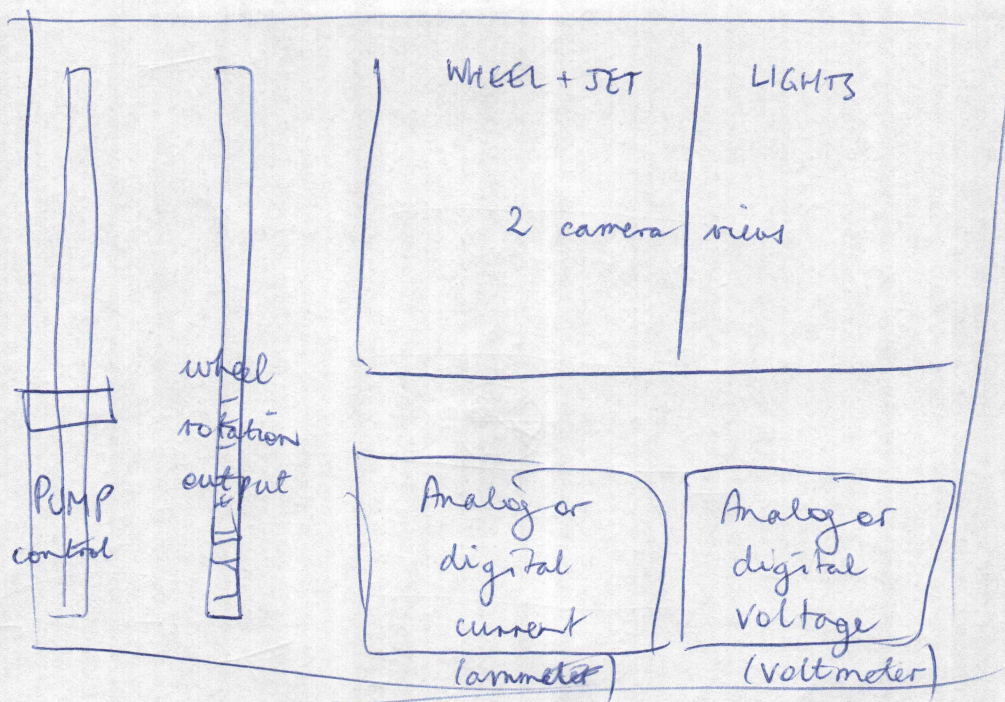 WHEEL + JET
LIGHTS
2 camera views
wheel
rotation
output
PUMP
control
Analog or
digital
current
(ammeter)
Analog or
digital
voltage
(voltmeter)